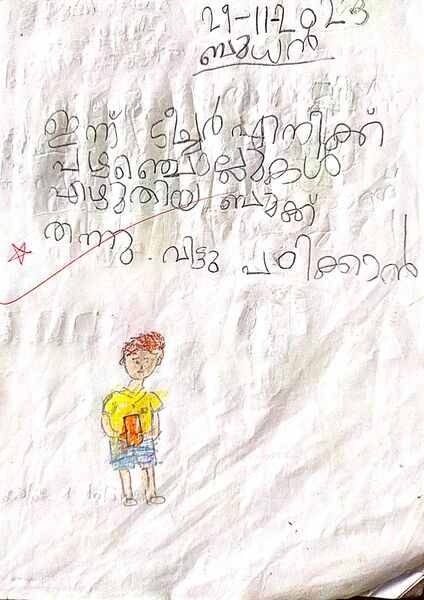 29-11-2023
ബുധൻ
ഇന്ന് ടീച്ചർ എനിക്ക്
പഴഞ്ചൊല്ലുകൾ
എഴുതിയ ബുക്ക്
തന്നു. വിട്ടു പഠിക്കാൻ